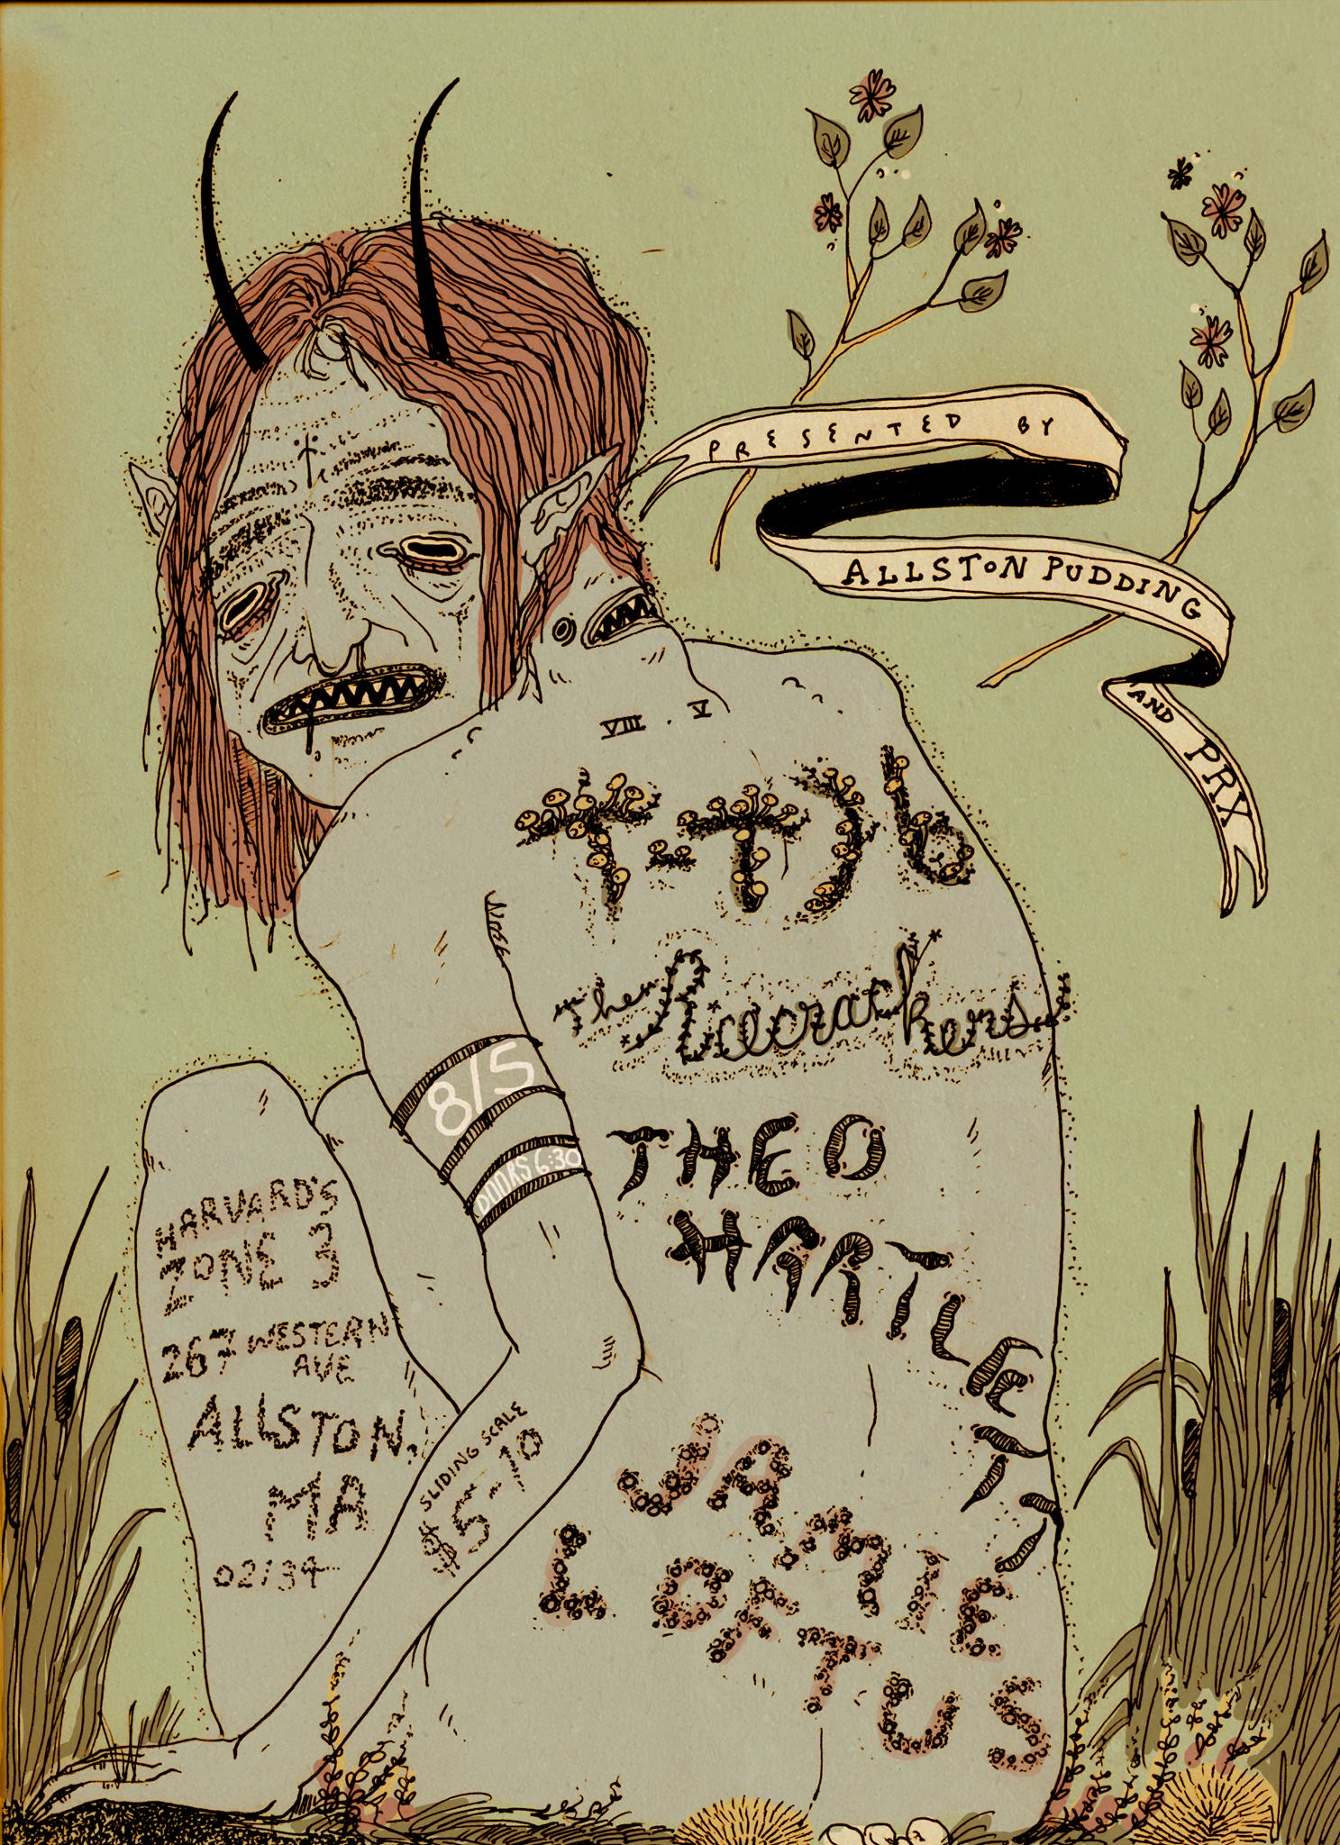 PRESENTED BY
ALLSTON PUDDING
AND PRX
VIII . V
T-Rex
The Icecrackers
THEO
HARTLETT
JAMIE
LOFTUS
8/5
DOORS 6:30
HARVARD'S
ZONE 3
267 WESTERN
AVE
ALLSTON,
MA
02134
SLIDING SCALE
$5-10